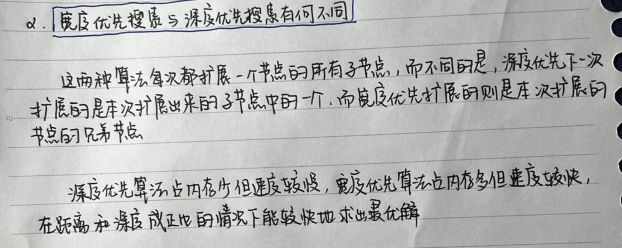 2. 宽度优先搜索与深度优先搜索有何不同
这两种算法每次都扩展一个节点的所有子节点,而不同的是,深度优先下一次
扩展的是本次扩展出来的子节点中的一个.而宽度优先扩展的则是本次扩展的
节点的兄弟节点
深度优先算法占内存少但速度较慢,宽度优先算法占内存多但速度较快,
在距离和深度成正比的情况下能较快地求出最优解